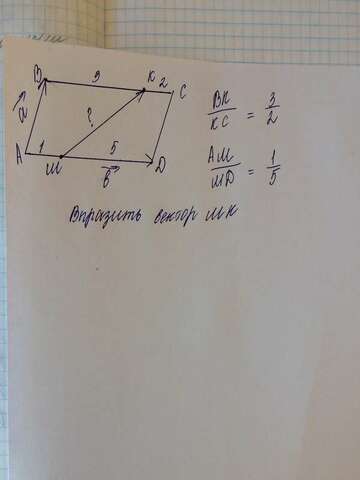 B 3 K 2 C
a
?
A 1 M 5 D
b
BK/KC = 3/2
AM/MD = 1/5
Выразить вектор MK